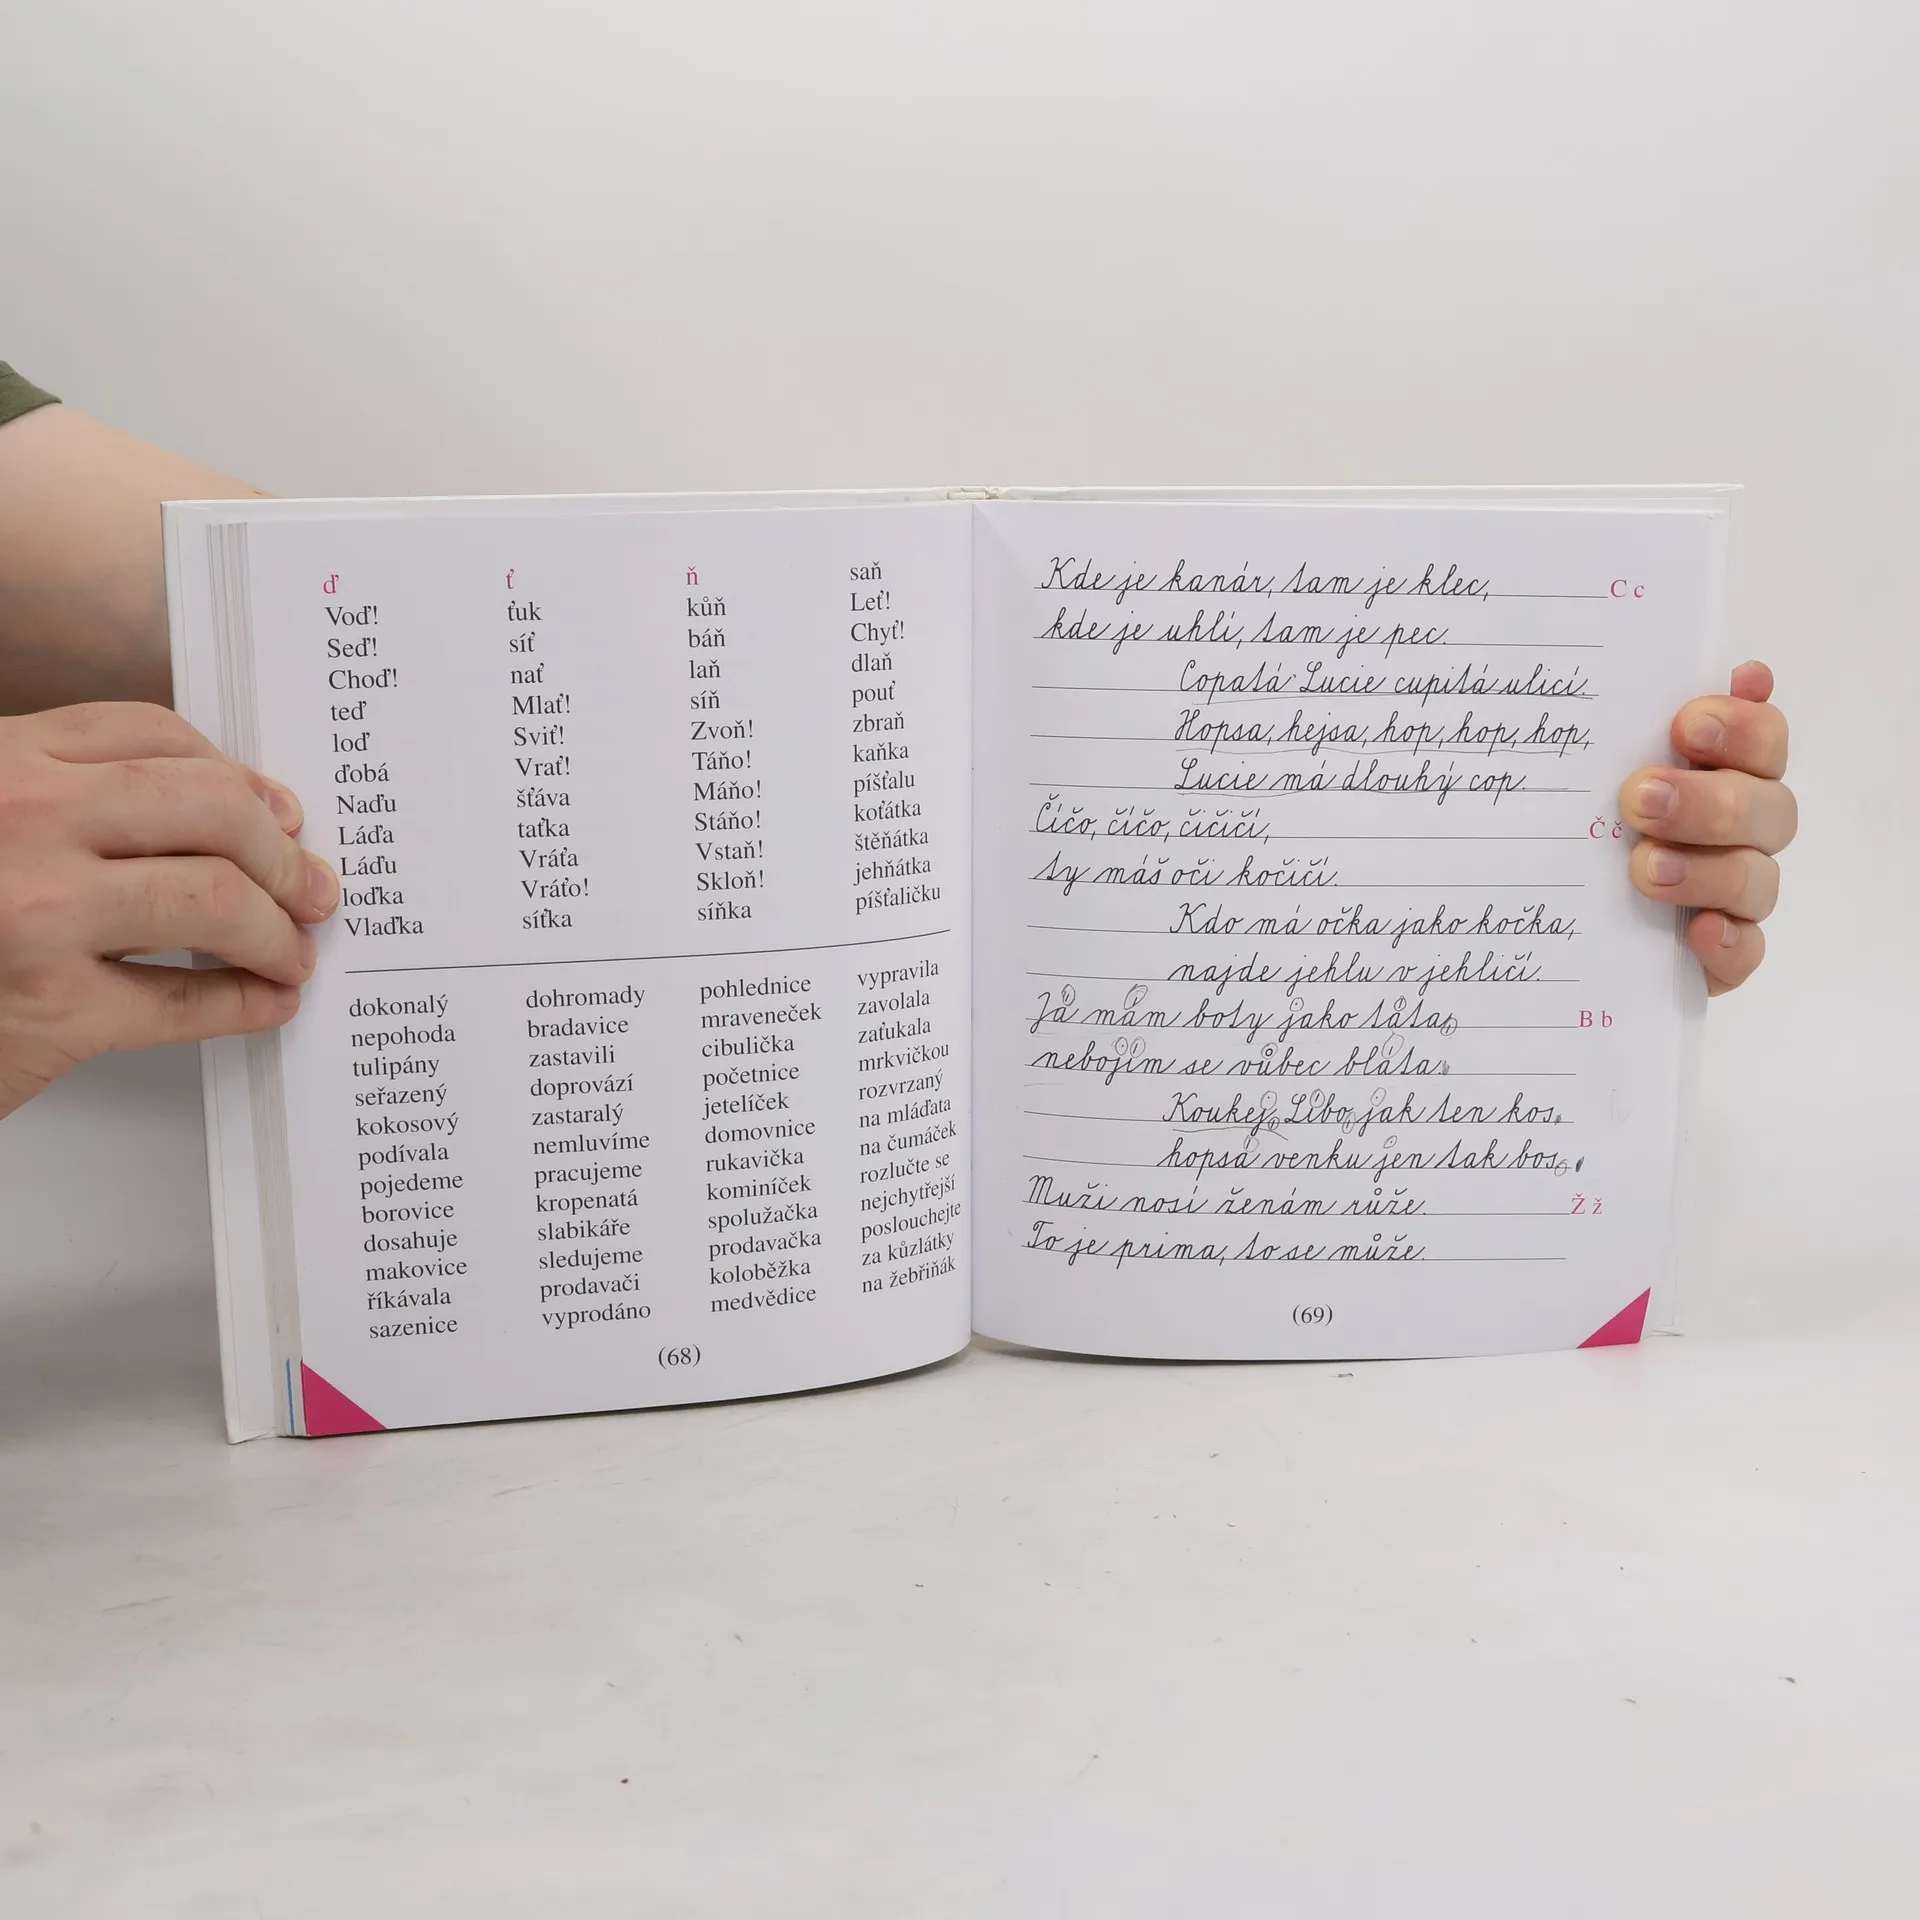 ď ť ň saň
Voď! ťuk kůň Leť!
Seď! síť báň Chyť!
Choď! nať laň dlaň
teď Mlať! síň pouť
loď Sviť! Zvoň! zbraň
ďobá Vrať! Táňo! kaňka
Naďu šťáva Máňo! píšťalu
Láďa taťka Stáňo! koťátka
Láďu Vráťa Vstaň! štěňátka
loďka Vráťo! Skloň! jehňátka
Vlaďka síťka síňka píšťaličku
dokonalý dohromady pohlednice vypravila
nepohoda bradavice mraveneček zavolala
tulipány zastavili cibulička zaťukala
seřazený doprovází početnice mrkvičkou
kokosový zastaralý jetelíček rozvrzaný
podívala nemluvíme domovnice na mláďata
pojedeme pracujeme rukavička na čumáček
borovice kropenatá kominíček rozlučte se
dosahuje slabikáře spolužačka nejchytřejší
makovice sledujeme prodavačka poslouchejte
říkávala prodavači koloběžka za kůzlátky
sazenice vyprodáno medvědice na žebřiňák
(68)
Kde je kanár, tam je klec, C c
kde je uhlí, tam je pec.
Copatá Lucie cupitá ulicí.
Hopsa, hejsa, hop, hop, hop,
Lucie má dlouhý cop.
Číčo, číčo, čičičí, Č č
ty máš oči kočičí.
Kdo má očka jako kočka,
najde jehlu v jehličí.
Já mám boty jako táta, B b
nebojím se vůbec bláta.
Koukej, Líbo, jak ten kos,
hopsá venku jen tak bos.
Muži nosí ženám růže. Ž ž
To je prima, to se může.
(69)